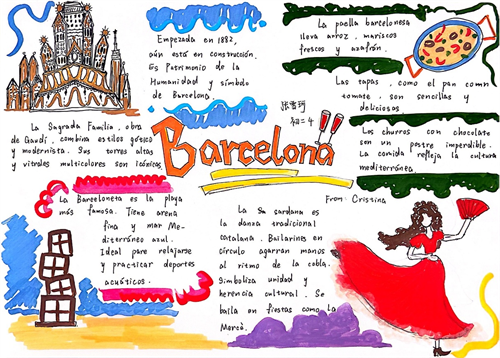 Empezada en 1882,
aún está en construcción.
Es Patrimonio de la
Humanidad y símbolo
de Barcelona.
La paella barcelonesa
lleva arroz, mariscos
frescos y azafrán.
Las tapas, como el pan con
tomate, son sencillas y
deliciosas
Los churros con chocolate
son un postre imperdible.
La comida refleja la cultura
mediterránea.
初二4
Barcelona
La Sagrada Familia, obra
de Gaudí, combina estilos gótico
y modernista. Sus torres altas
y vitrales multicolores son icónicos.
From: Cristina
La Barceloneta es la playa
más famosa. Tiene arena
fina y mar Me-
diterráneo azul.
Ideal para relajarse
y practicar deportes
acuáticos.
La Sa sardana es
la danza tradicional
catalana. Bailarines en
círculo agarran manos
al ritmo de la cobla.
Simboliza unidad y
herencia cultural. Se
baila en fiestas como La
Mercè.